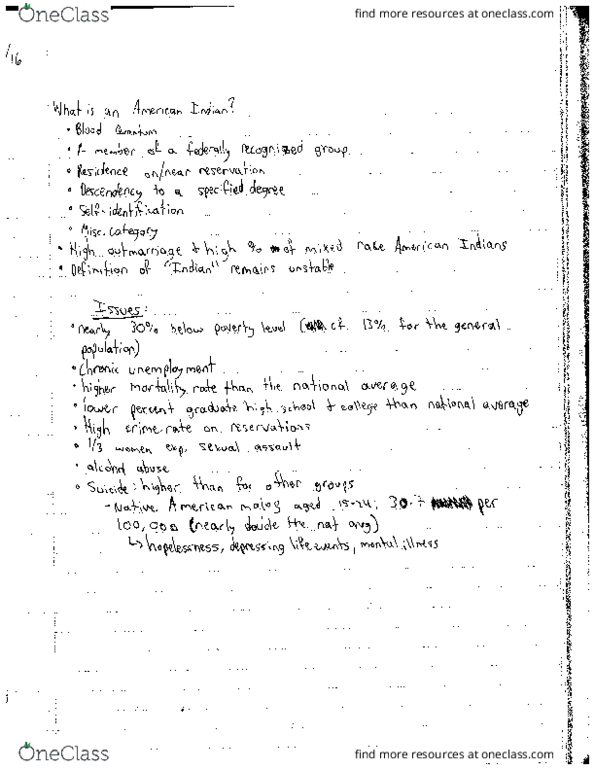 OneClass
find more resources at oneclass.com
/16
What is an American Indian?
• Blood Quantum
• 1- member of a federally recognized group
• Residence on/near reservation
• Descendency to a specified degree
• Self-identification
• Misc. category
• High outmarriage & high % of mixed race American Indians
• Definition of "Indian" remains unstable
Issues:
• nearly 30% below poverty level (cf. 13% for the general
population)
• Chronic unemployment
• higher mortality rate than the national average
• lower percent graduate high school & college than national average
• High crime rate on reservations
• 1/3 women exp. sexual assault
• alcohol abuse
• Suicide: higher than for other groups
- Native American males aged 15-24: 30.7 per
100,000 (nearly double the nat avg)
↳ hopelessness, depressing life events, mental illness
OneClass
find more resources at oneclass.com